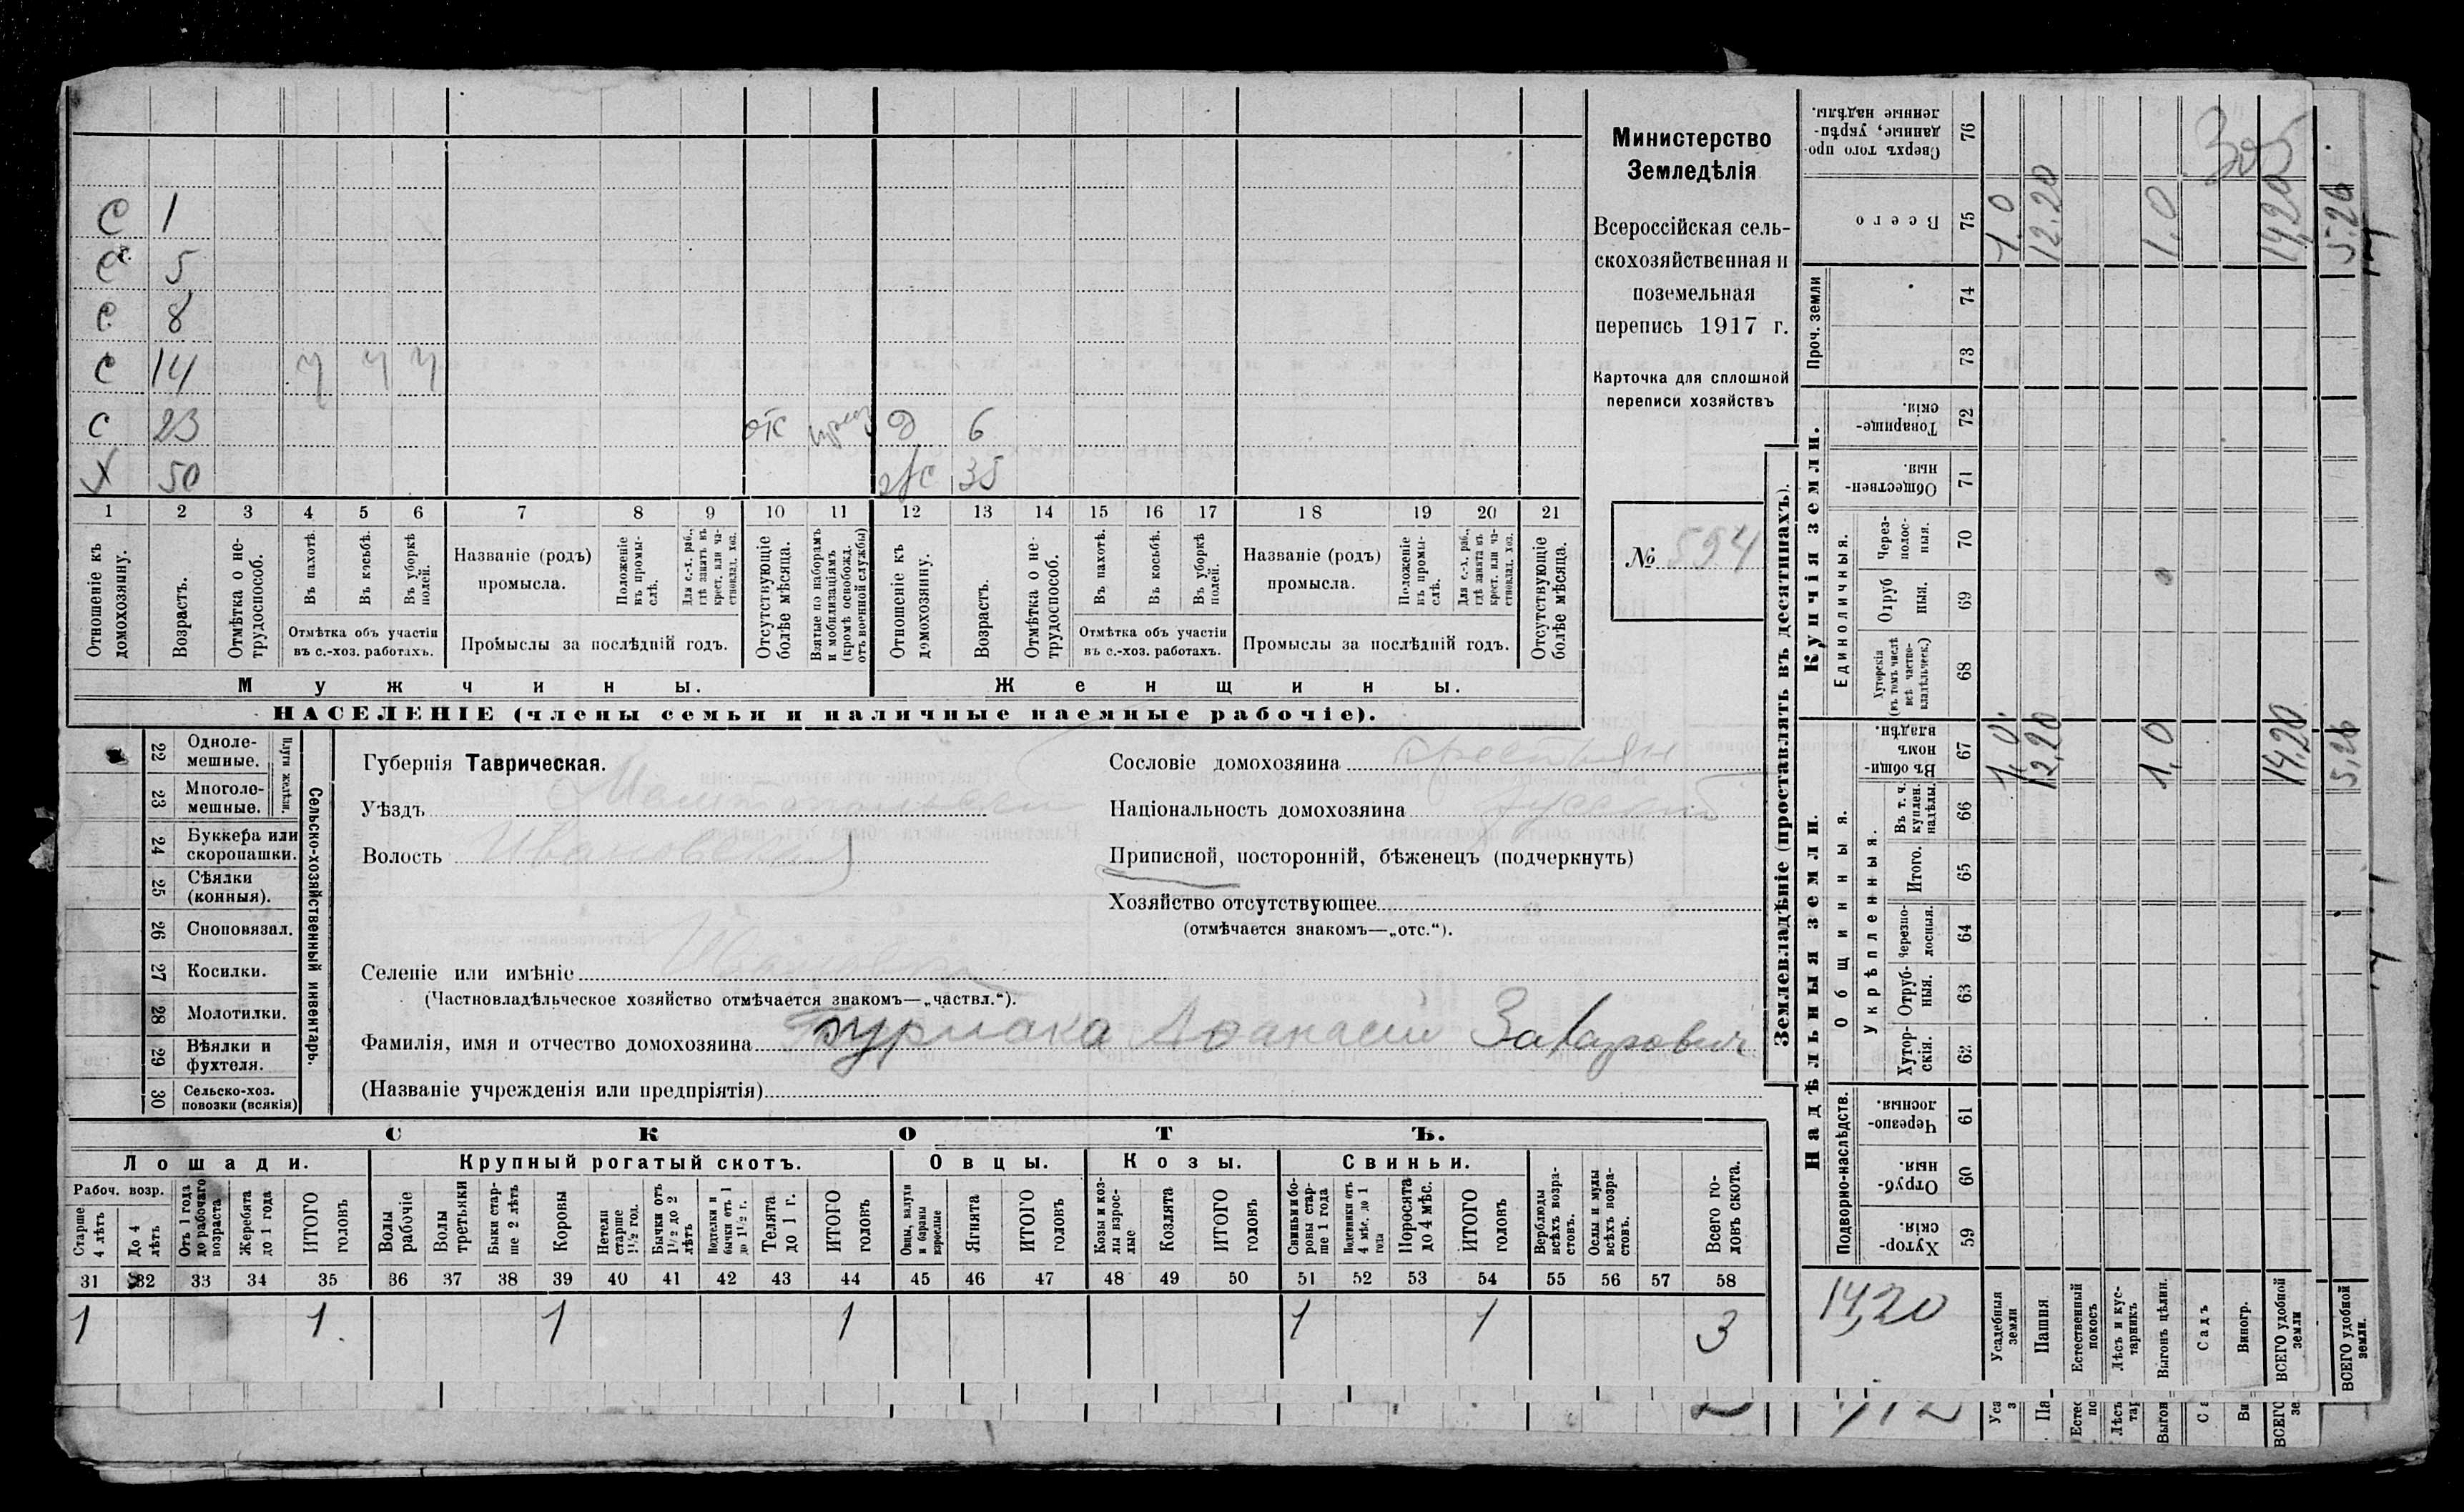 С 1
С 5
С 8
С 14 ч ч ч
С 23 отс д 6
Х 50 ж 35
1 2 3 4 5 6 7 8 9 10 11 12 13 14 15 16 17 18 19 20 21
Отношеніе къ домохозяину.
Возрастъ.
Отмѣтка о не-трудоспособ.
Въ пахотѣ.
Въ косьбѣ.
Въ уборкѣ полей.
Отмѣтка объ участіи въ с.-хоз. работахъ.
Названіе (родъ) промысла.
Положеніе въ промы-слѣ.
Для с.-х. раб., гдѣ занятъ въ крест. или ча-стновлад. хоз.
Промыслы за послѣдній годъ.
Отсутствующіе болѣе мѣсяца.
Взятые по наборамъ и мобилизаціямъ (кромѣ освобожд. отъ военной службы)
Отношеніе къ домохозяину.
Возрастъ.
Отмѣтка о не-трудоспособ.
Въ пахотѣ.
Въ косьбѣ.
Въ уборкѣ полей.
Отмѣтка объ участіи въ с.-хоз. работахъ.
Названіе (родъ) промысла.
Положеніе въ промы-слѣ.
Для с.-х. раб., гдѣ занята въ крест. или ча-стновлад. хоз.
Промыслы за послѣдній годъ.
Отсутствующіе болѣе мѣсяца.
Мужчины. Женщины.
НАСЕЛЕНІЕ (члены семьи и наличные наемные рабочіе).
Министерство
Земледѣлія
Всероссійская сель-
скохозяйственная и
поземельная
перепись 1917 г.
Карточка для сплошной
переписи хозяйствъ
№ 594
Сельско-хозяйственный инвентарь.
22 Одноле-мешные.
23 Многоле-мешные.
24 Буккера или скоропашки.
25 Сѣялки (конныя).
26 Сноповязал.
27 Косилки.
28 Молотилки.
29 Вѣялки и фухтеля.
30 Сельско-хоз. повозки (всякія)
Губернія Таврическая.
Уѣздъ Мелитопольскій
Волость Ивановская
Селеніе или имѣніе
(Частновладѣльческое хозяйство отмѣчается знакомъ—„частвл.“).
Сословіе домохозяина крестьян
Національность домохозяина русскій
Приписной, посторонній, бѣженецъ (подчеркнуть)
Хозяйство отсутствующее
(отмѣчается знакомъ—„отс.“).
Фамилія, имя и отчество домохозяина Афанасій Захарович
(Названіе учрежденія или предпріятія)
СКОТЪ.
Лошади. Крупный рогатый скотъ. Овцы. Козы. Свиньи.
Рабоч. возр.
Старше 4 лѣтъ
До 4 лѣтъ
Отъ 1 года до рабочаго возраста
Жеребята до 1 года
ИТОГО головъ
Волы рабочіе
Волы третьяки
Быки стар-ше 2 лѣтъ
Коровы
Нетели старше 1½ год.
Бычки отъ 1½ до 2 лѣтъ
Подтелки и бычки отъ 1 до 1½ г.
Телята до 1 г.
ИТОГО головъ
Овцы, валухи и бараны взрослые
Ягнята
ИТОГО головъ
Козы и коз-лы взрос-лые
Козлята
ИТОГО головъ
Свиньи и бо-ровы стар-ше 1 года
Подсвинки отъ 4 мѣс. до 1 года
Поросята до 4 мѣс.
ИТОГО головъ
Верблюды всѣхъ возра-стовъ.
Ослы и мулы всѣхъ возра-стовъ.
Всего го-ловъ скота.
31 32 33 34 35 36 37 38 39 40 41 42 43 44 45 46 47 48 49 50 51 52 53 54 55 56 57 58
1 1 1 1 1 1 3
Землевладѣніе (проставлять въ десятинахъ).
Надѣльныя земли.
Подворно-наслѣдств.
Хутор-скія. 59
Отруб-ныя. 60
Черезпо-лосныя. 61
Общинныя.
Укрѣпленныя.
Хутор-скія. 62
Отруб-ныя. 63
Черезпо-лосныя. 64
Итого. 65
Въ т. ч. куплен. надѣлы. 66
Въ общин-номъ владѣн. 67
Купчія земли.
Единоличныя.
Хуторскія (въ томъ числѣ всѣ частно-владѣльческ.) 68
Отруб ныя. 69
Через-полос-ныя. 70
Обществен-ныя 71
Товарище-скія. 72
Проч. земли 73 74
Всего 75
Сверхъ того про-данные, укрѣп-ленные надѣлы. 76
14,20
Усадебныя земли 1,0 1,0
Пашня 12,20 12,20
Естественный покосъ
Лѣсъ и кус-тарникъ
Выгонъ цѣлин. 1,0 1,0
Садъ
Виногр.
ВСЕГО удобной земли 14,20 14,20
305
ВСЕГО удобной земли. 5,26 5,26